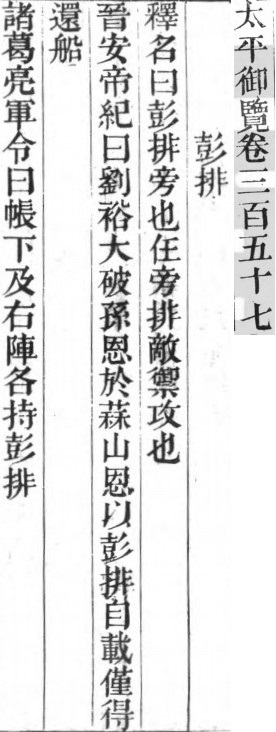 太平御覽卷三百五十七
彭排
釋名曰彭排旁也在旁排敵禦攻也
晉安帝紀曰劉裕大破孫恩於蒜山恩以彭排自載僅得
還船
諸葛亮軍令曰帳下及右陣各持彭排